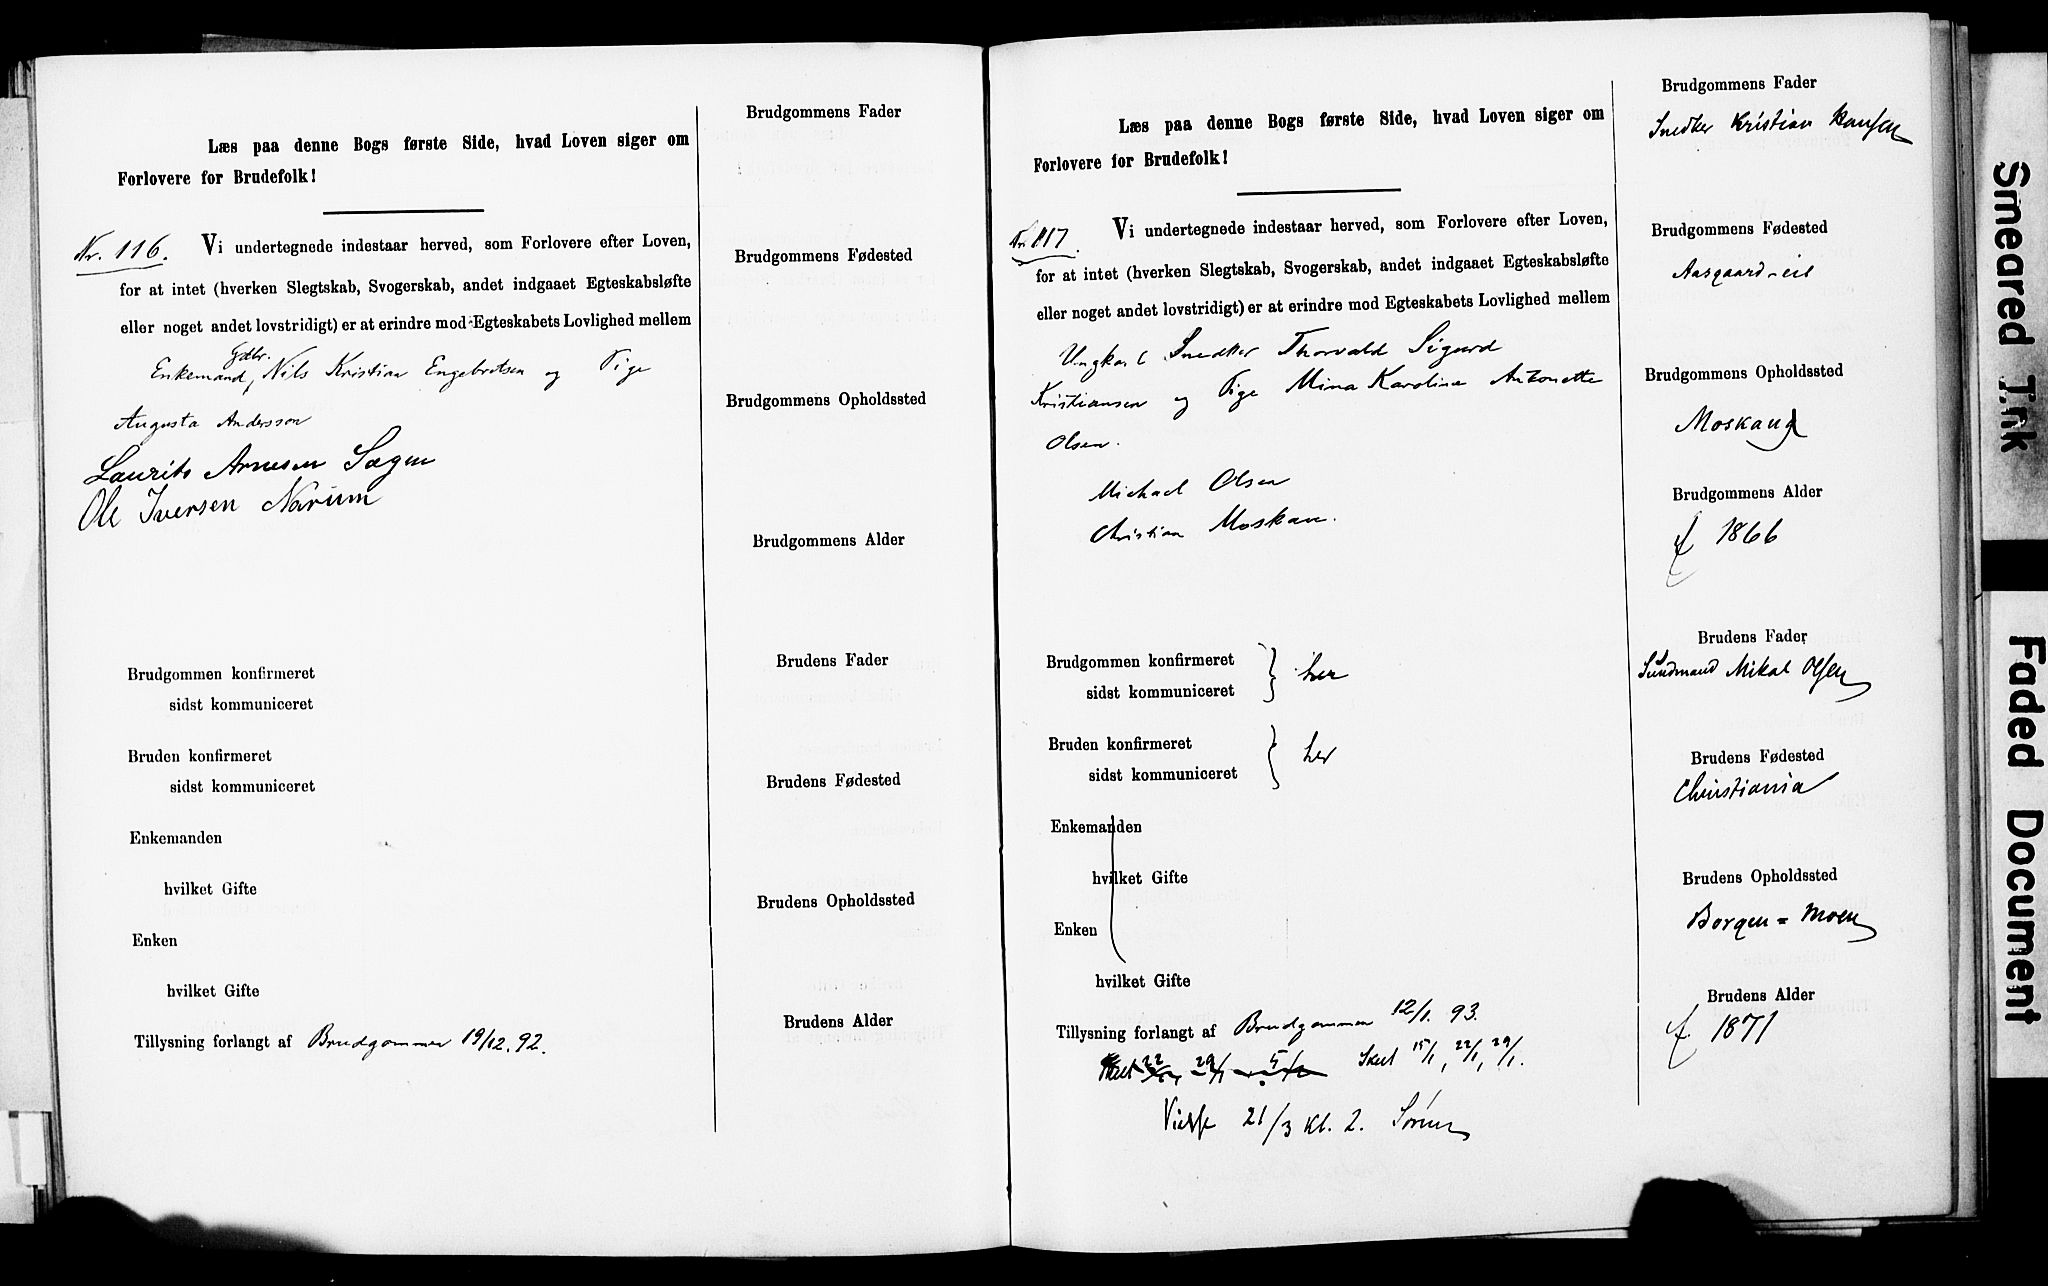 Læs paa denne Bogs første Side, hvad Loven siger om
Forlovere for Brudefolk!
Nr. 116.
Vi undertegnede indestaar herved, som Forlovere efter Loven,
for at intet (hverken Slegtskab, Svogerskab, andet indgaaet Egteskabsløfte
eller noget andet lovstridigt) er at erindre mod Egteskabets Lovlighed mellem
Gdbr.
Enkemand, Nils Kristian Engebretsen og Pige
Augusta Andersson
Laurits Arnesen Sagen
Ole Iversen Narum
Brudgommen konfirmeret
sidst kommuniceret
Bruden konfirmeret
sidst kommuniceret
Enkemanden
hvilket Gifte
Enken
hvilket Gifte
Tillysning forlangt af Brudgommen 19/12. 92.
Brudgommens Fader
Brudgommens Fødested
Brudgommens Opholdssted
Brudgommens Alder
Brudens Fader
Brudens Fødested
Brudens Opholdssted
Brudens Alder
Læs paa denne Bogs første Side, hvad Loven siger om
Forlovere for Brudefolk!
Nr. 117.
Vi undertegnede indestaar herved, som Forlovere efter Loven,
for at intet (hverken Slegtskab, Svogerskab, andet indgaaet Egteskabsløfte
eller noget andet lovstridigt) er at erindre mod Egteskabets Lovlighed mellem
Ungkarl Snedker Thorvald Sigurd
Kristiansen og Pige Mina Karoline Antonette
Olsen.
Michael Olsen
Christian Moskau.
Brudgommen konfirmeret
sidst kommuniceret
her
Bruden konfirmeret
sidst kommuniceret
her
Enkemanden
hvilket Gifte
Enken
hvilket Gifte
Tillysning forlangt af Brudgommen 12/1. 93.
Skeet 15/1, 22/1, 29/1.
21/3 Kl. 2.
Brudgommens Fader
Snedker Kristian Hansen
Brudgommens Fødested
Aasgaard-eie
Brudgommens Opholdssted
Moskaug
Brudgommens Alder
f 1866
Brudens Fader
Mikal Olsen
Brudens Fødested
Christiania
Brudens Opholdssted
Borgen = Moen
Brudens Alder
f. 1871
Smeared Ink
Faded Document